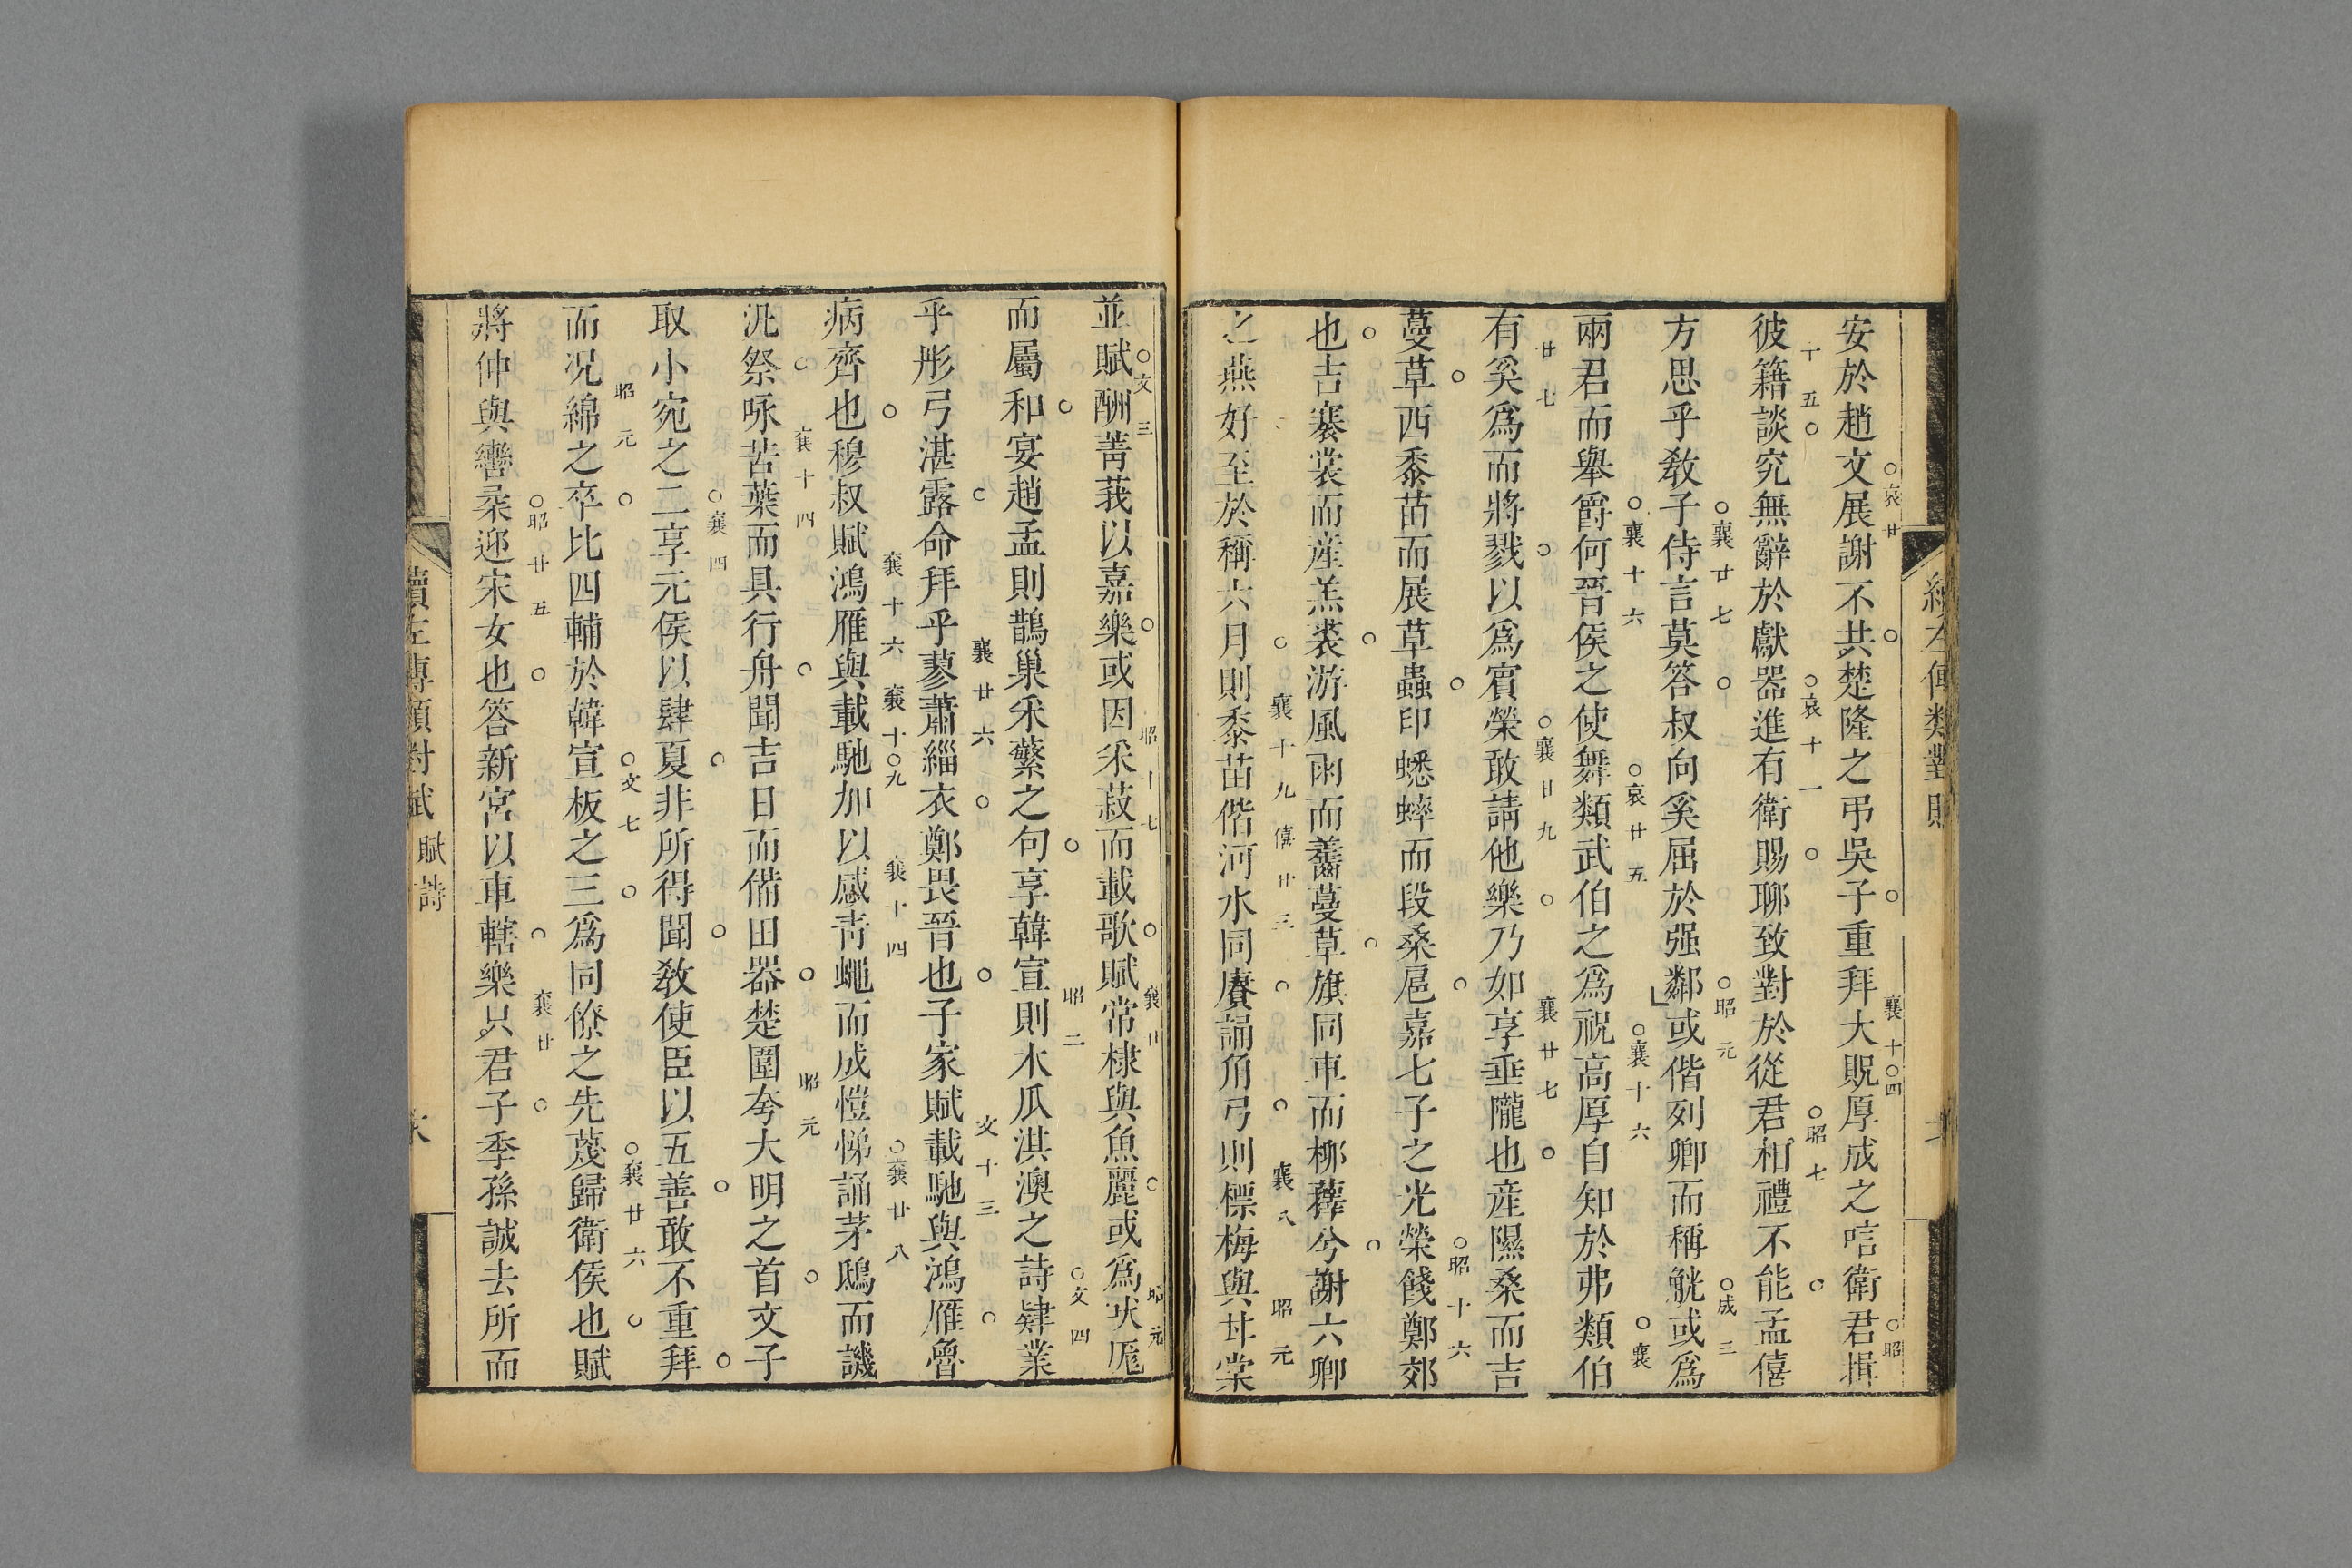 安於趙文展謝不共楚隆之弔吳子重拜大貺厚成之唁衛君揖
彼籍談究無辭於獻器進有衛賜聊致對於從君相禮不能孟僖
方思乎敎子侍言莫答叔向奚屈於强鄰或偕列卿而稱觥或爲
兩君而舉爵何晉侯之使舞類武伯之爲祝高厚自知於弗類伯
有奚爲而將戮以爲賓榮敢請他樂乃如享垂隴也産隰桑而吉
蔓草西黍苗而展草蟲印蟋蟀而段桑扈嘉七子之光榮餞鄭郊
也吉褰裳而産羔裘游風雨而齹蔓草旗同車而柳蘀兮謝六卿
之燕好至於稱六月則黍苗偕河水同賡誦角弓則標梅與甘棠
並賦酬菁莪以嘉樂或因采菽而載歌賦常棣與魚麗或爲吠厖
而屬和宴趙孟則鵲巢采蘩之句享韓宣則木瓜淇澳之詩肄業
乎彤弓湛露命拜乎蓼蕭緇衣鄭畏晉也子家賦載馳與鴻雁魯
病齊也穆叔賦鴻雁與載馳加以感靑蠅而成愷悌誦茅鴟而譏
汎祭咏苦葉而具行舟聞吉日而備田器楚圍夸大明之首文子
取小宛之二享元侯以肆夏非所得聞敎使臣以五善敢不重拜
而况綿之卒比四輔於韓宣板之三爲同僚之先蔑歸衛侯也賦
將仲與轡柔迎宋女也答新宮以車轄樂只君子季孫誠去所而
續左傳類對賦
賦詩
哀廿
襄十四
昭
十五
哀十一
昭七
襄廿七
昭元
成三
襄十六
哀廿五
襄十六
襄
廿七
襄廿九
襄廿七
昭十六
襄十九
僖廿三
襄八
昭元
文三
昭十七
襄廿
昭元
昭二
文四
襄廿六
文十三
襄十六
襄十九
襄十四
襄廿八
襄十四
昭元
襄四
昭元
文七
襄廿六
昭廿五
襄廿